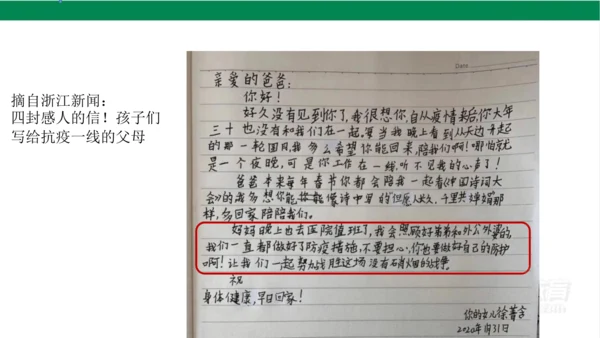 摘自浙江新闻：
四封感人的信！孩子们
写给抗疫一线的父母
Date
亲爱的爸爸：
你好！
好久没有见到你了，我很想你，自从疫情
三十也没有和我们在一起，每当我晚上看到从天边升起
的那一轮圆月，我多么希望你能回来，陪陪我们啊！哪怕就
是一个夜晚，可是你工作在一线，听不见我的心声了！
爸爸本来每年春节你都会陪我一起看《中国诗词大
会》的，我多想你能像诗中写的“但愿人长久，千里共婵娟”那
样，多回家陪陪我们。
妈妈晚上也去医院值班了，我会照顾好弟弟和外公外婆的
我们一直都做好了防疫措施，不要担心，你也要做好自己的防护
啊！让我们一起努力战胜这场没有硝烟的战争。
祝
身体健康，早日回家！
你的女儿徐
2020年1月31日